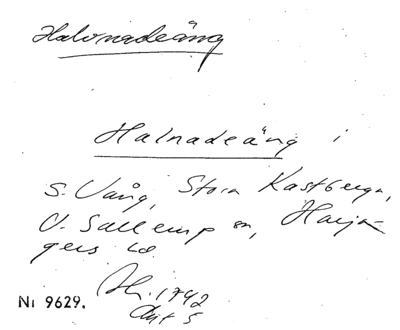 Halvnadeäng
Halnadeäng i
S. Vång, Stora Kastberga,
V. Sallerup sn, Harja-
gers hd
Ah. 1792
Akt 5
Nr 9629.